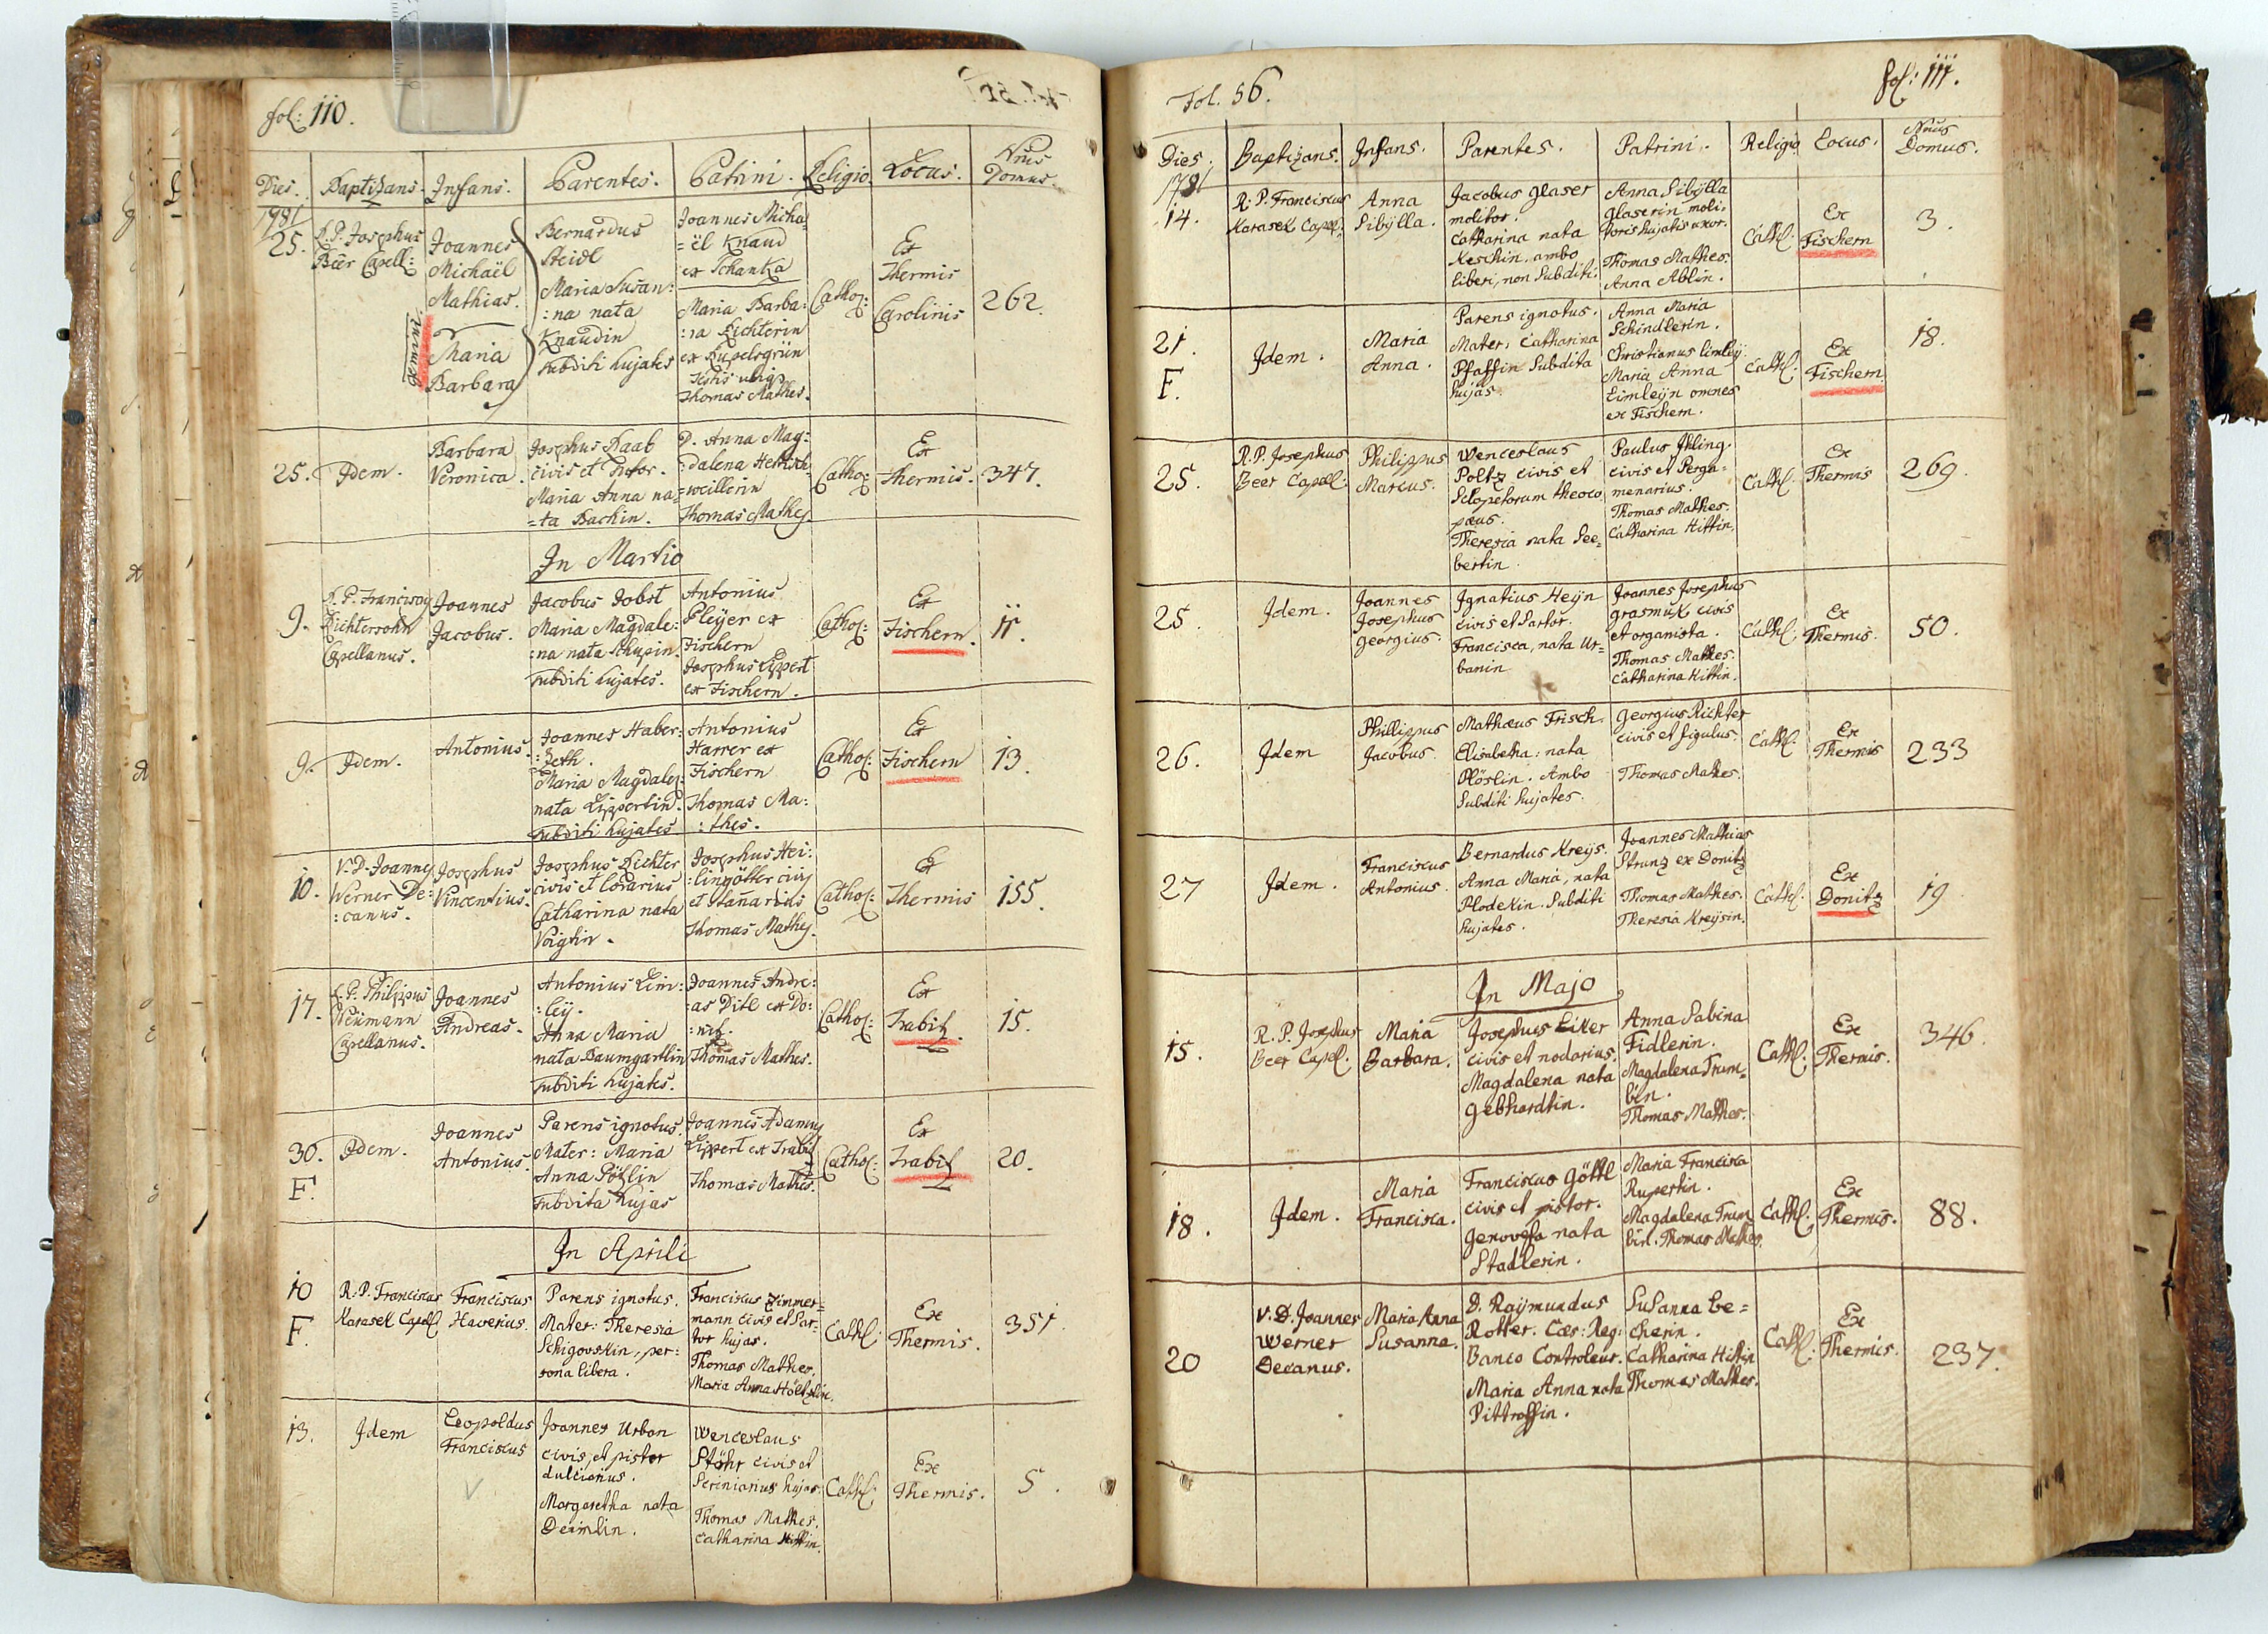 fol: 110.
Dies. Baptizans. Infans. Parentes. Patrini. Religio. Locus. Nrus Domus.
1781
25. R.P. Josephus
Beer Capell:
Joannes
Michaël
Mathias.
gemini.
Maria
Barbara
Bernardus
Steidl
Maria Susan:
:na nata
Knaudin
subditi hujates
Joannes Micha=
=ël Knaud
ex Schanka
Maria Barba:
:ra Richterin
ex Rupelsgrün
Testis ubiq.
Thomas Mathes.
Cathol:
Ex
Thermis
Carolinis
262.
25. Idem.
Barbara
Veronica.
Josephus Raab
civis et Sutor.
Maria Anna na=
=ta Bachin.
D. Anna Mag:
:dalena
=weillerin
Thomas Mathes
Cathol:
Ex
Thermis.
347.
In Martio
9.
R.P. Franciscus
Richtersohn
Capellanus.
Joannes
Jacobus.
Jacobus Jobst
Maria Magdale:
:na nata Schupin.
subditi hujates.
Antonius
Pleÿer ex
Fischern
Josephus Lippert
ex Fischern.
Cathol:
Ex
Fischern.
11.
9. Idem.
Antonius.
Joannes Haber:
:zeth.
Maria Magdale:
nata Lippertin.
subditi hujates
Antonius
Harrer ex
Fischern
Thomas Ma:
:thes.
Cathol:
Ex
Fischern
13.
10.
V.D. Joannes
Werner De:
:canus.
Josephus
Vincentius.
Josephus Richter
civis et Lorarius
Catharina nata
Voigtin.
Josephus Hei:
:lingötter civis
et tanarius
Thomas Mathes.
Cathol:
Ex
Thermis
155.
17.
R.P. Philippus
Neümann
Capellanus.
Joannes
Andreas.
Antonius Lim:
:leÿ.
Anna Maria
nata Baumgartlin
subditi hujates.
Joannes Andre:
:as Ditl ex Do:
:nitz.
Thomas Mathes.
Cathol:
Ex
Trabitz.
15.
30.
F.
Idem.
Joannes
Antonius.
Parens ignotus.
Mater: Maria
Anna Pötzlin
subdita hujas
Joannes Adamus
Lippert ex Trabitz
Thomas Mathes.
Cathol:
Ex
Trabitz
20.
In Aprili
10
F.
R.P. Franciscus
Karasek Capell.
Franciscus
Xaverius.
Parens ignotus.
Mater: Theresia
Schigovskin, per:
sona libera.
Franciscus Zimmer=
mann civis et Sar=
tor hujas.
Thomas Mathes.
Maria Anna Höltzlin.
Cathl:
Ex
Thermis.
351
13. Idem
Leopoldus
Franciscus
Joannes Urban
civis, et pistor
dulciarius.
Margaretha nata
Deimlin.
Wenceslaus
Stöhr civis et
Scriniarius hujas.
Thomas Mathes.
Catharina Hittin.
Cathl:
Ex
Thermis.
5.
Fol. 56.
fol: 111.
Dies. Baptizans. Infans. Parentes. Patrini. Religio Locus. Nrus Domus.
1781
14.
R.P. Franciscus
Karasek Capell:
Anna
Sibÿlla.
Jacobus Glaser
molitor.
Catharina nata
Keschin. ambo
liberi, non Subditi.
Anna Sibÿlla
Glaserin moli=
toris hujatis uxor.
Thomas Mathes.
Anna Ablin.
Cathl.
Ex
Fischern
3.
21.
F.
Idem.
Maria
Anna.
Parens ignotus.
Mater: Catharina
Pfaffin Subdita
hujas.
Anna Maria
Schindlerin.
Christianus Limleÿ.
Maria Anna
Limleÿn omnes
ex Fischern.
Cathl.
Ex
Fischern
18.
25.
R.P. Josephus
Beer Capell.
Philippus
Marcus.
Wenceslaus
Poltz civis et
Sclopetorum theoco
pæus.
Theresia nata See=
bertin
Paulus Ihling.
civis et Perga=
menarius.
Thomas Mathes.
Catharina Hittin.
Cathl.
Ex
Thermis
269.
25. Idem.
Joannes
Josephus
Georgius.
Ignatius Heÿn
civis et Sartor.
Francisca, nata Ur=
banin
Joannes Josephus
Grasmuk civis
et organista.
Thomas Mathes.
Catharina Hittin.
Cathl.
Ex
Thermis.
50.
26. Idem
Phillippus
Jacobus
Mathæus Frisch.
Elisabetha: nata
Plöslin. Ambo
Subditi hujates.
Georgius Richter
civis et figulus.
Thomas Mathes.
Cathl.
Ex
Thermis
233
27 Idem.
Franciscus
Antonius.
Bernardus Kreÿs.
Anna Maria, nata
Plodekin. Subditi
hujates.
Joannes Mathias
Strunz ex Donitz
Thomas Mathes.
Theresia Kreÿsin.
Cathl.
Ex
Donitz
19.
In Majo
15.
R.P. Josephus
Beer Capel.
Maria
Barbara.
Josephus Liker
civis et nodarius.
Magdalena nata
Gebhardtin.
Anna Sabina
Fidlerin.
Magdalena Trum=
bin.
Thomas Mathes.
Cathl.
Ex
Thermis.
346.
18. Idem.
Maria
Francisca.
Franciscus Göttl
civis et pistor.
Genovefa nata
Stadlerin.
Maria Francisca
Rupertin.
Magdalena Trum
bin. Thomas Mathes.
Cathl.
Ex
Thermis.
88.
20
V.D. Joannes
Werner
Decanus.
Maria Anna
Susanna.
D. Raÿmundus
Rotter. Cæs: Reg:
Banco Controleur.
Maria Anna nata
Pittroffin.
Susanna Be=
cherin.
Catharina Hittin
Thomas Mathes.
Cathl.
Ex
Thermis.
237.